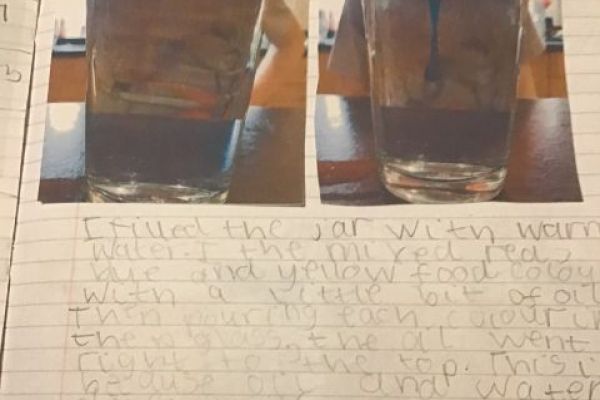 I filled the jar with warm
water. I the mixed red,
blye and yellow food coloy
with a little bit of oil
Then pouring each colour in
the glass. the oil went
right to the top. This i
because oil and water